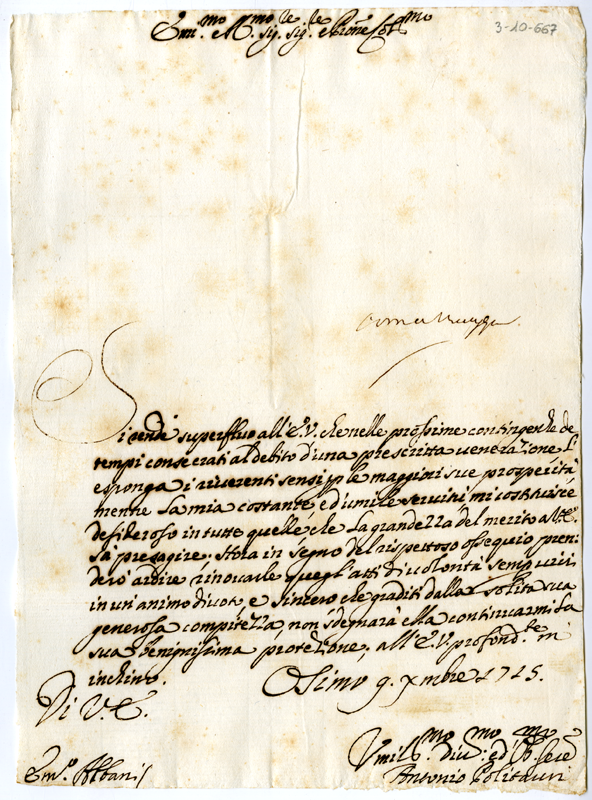 Em.mo e R.mo Sig.re Sig.re e Prone Col.mo
3-10-667
Si rende superfluo all'E.V. che nelle prossime contingenze de
tempi consecrati al debito d'una prescritta veneraz.ione Li
esponga i riverenti sensi p le maggiori sue prosperità
mentre la mia costante, ed umile servitù mi costituisce
desideroso in tutte quelle, che la grandezza del merito
sà presagire; Hora in segno del rispettoso ossequio pren:
derò ardire rinovarle quegl'atti di volontà sempre vivi
in un'animo divoto, e sincero che graditi dalla solita sua
generosa compitezza, non sdegnarà ella continuarmi la
sua benignissima protezione, all'E.V. profond.te m'
inchino.
Osimo 9. xmbre 1715.
Di V.E.
Vmil.mo diu.mo ed Ob.mo Sere
Em.o Albani
Antonio